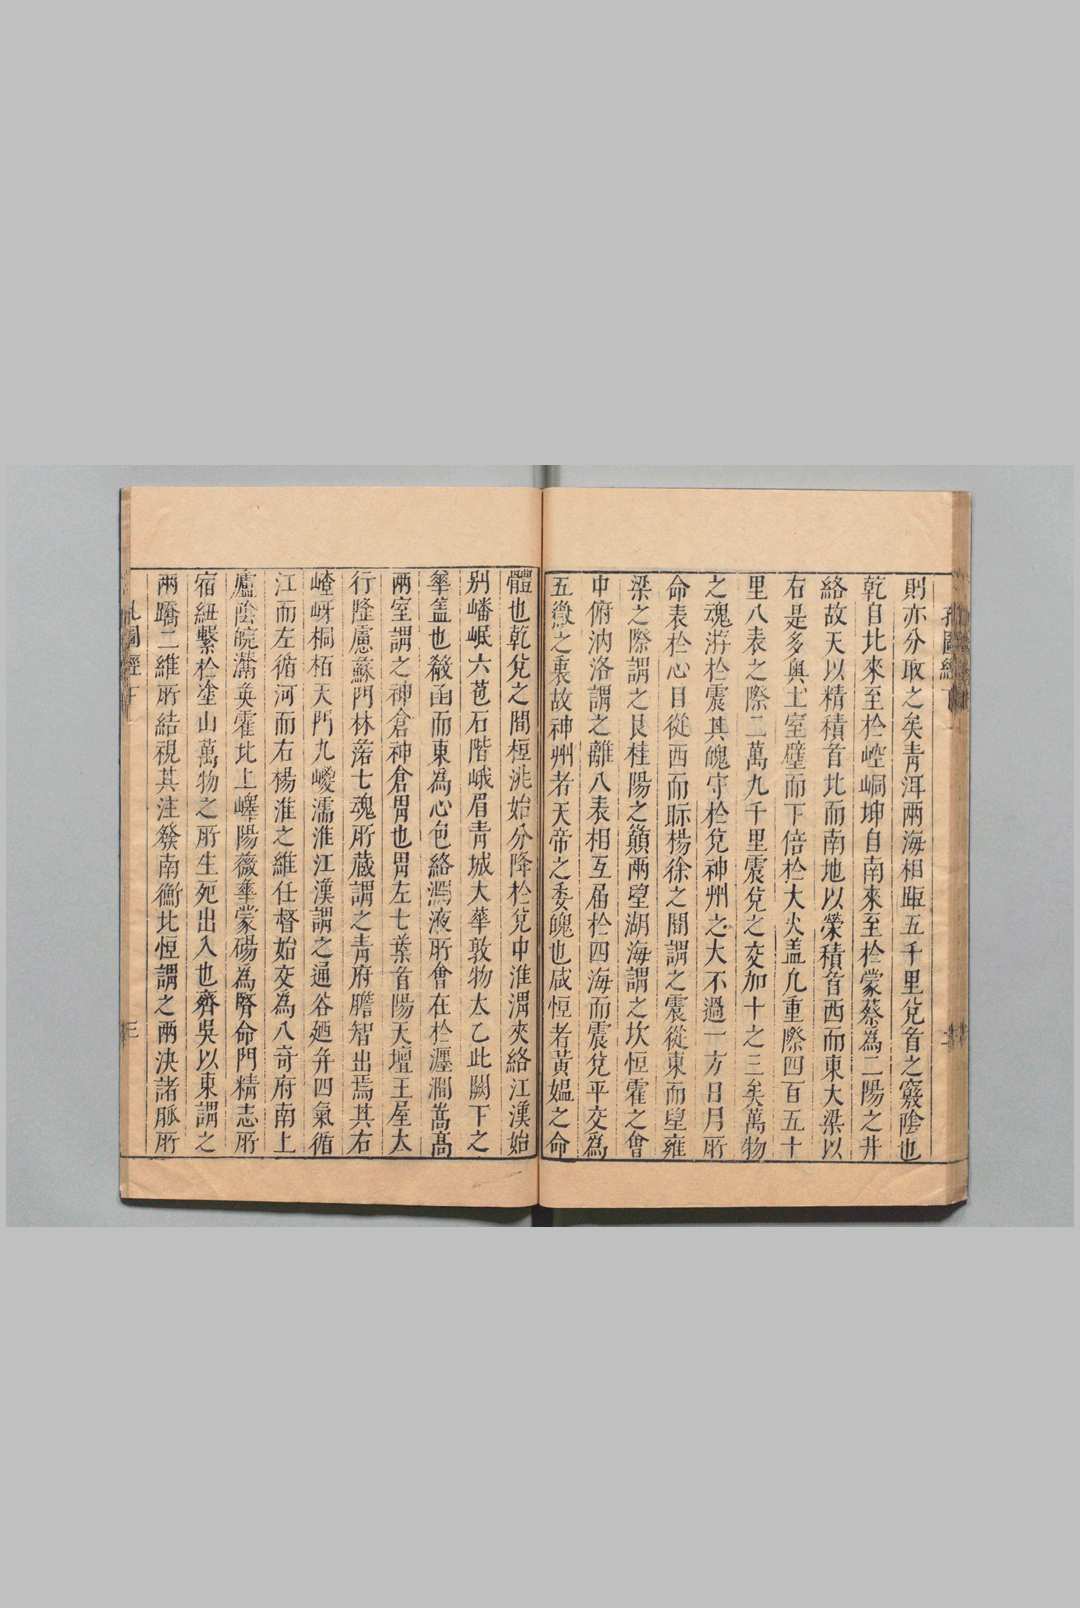 則亦分取之矣青洱兩海相距五千里兌首之竅陰也
乾自北來至於崆峒坤自南來至於蒙蔡為二陽之井
絡故天以精積首北而南地以榮積首西而東大梁以
右是多輿土室壁而下倍於大火蓋九重際四百五十
里八表之際二萬九千里震兌之交加十之三矣萬物
之魂游於震其魄守於兌神州之大不過一方日月所
命表於心目從西而眎楊徐之間謂之震從東而望雍
梁之際謂之艮桂陽之顛兩望湖海謂之坎恒霍之會
中俯汭洛謂之離八表相互届於四海而震兌平交為
五徵之裏故神州者天帝之委魄也咸恒者黃媼之命
體也乾兌之間桓洮始分降於兌中淮渭夾絡江漢始
別嶓岷六苞石階峨眉青城大華敦物太乙此關下之
華蓋也殽函而東為心包絡㵎液所會在於瀍澗嵩高
兩室謂之神倉神倉胃也胃左七葉首陽天壇王屋太
行隆慮蘇門林落七魂所藏謂之青府膽智出焉其右
嵖岈桐栢天門九嵕濡淮江漢謂之通谷廼弁四氣循
江而左循河而右楊淮之維任督始交為八奇府南上
廬陰皖灊奐霍北上嶧陽薇華蒙碭為腎命門精志所
宿紐繫於塗山萬物之所生死出入也齊吳以東謂之
兩蹻二維所結視其注發南衡北恒謂之兩決諸脈所
孔圖經下
三